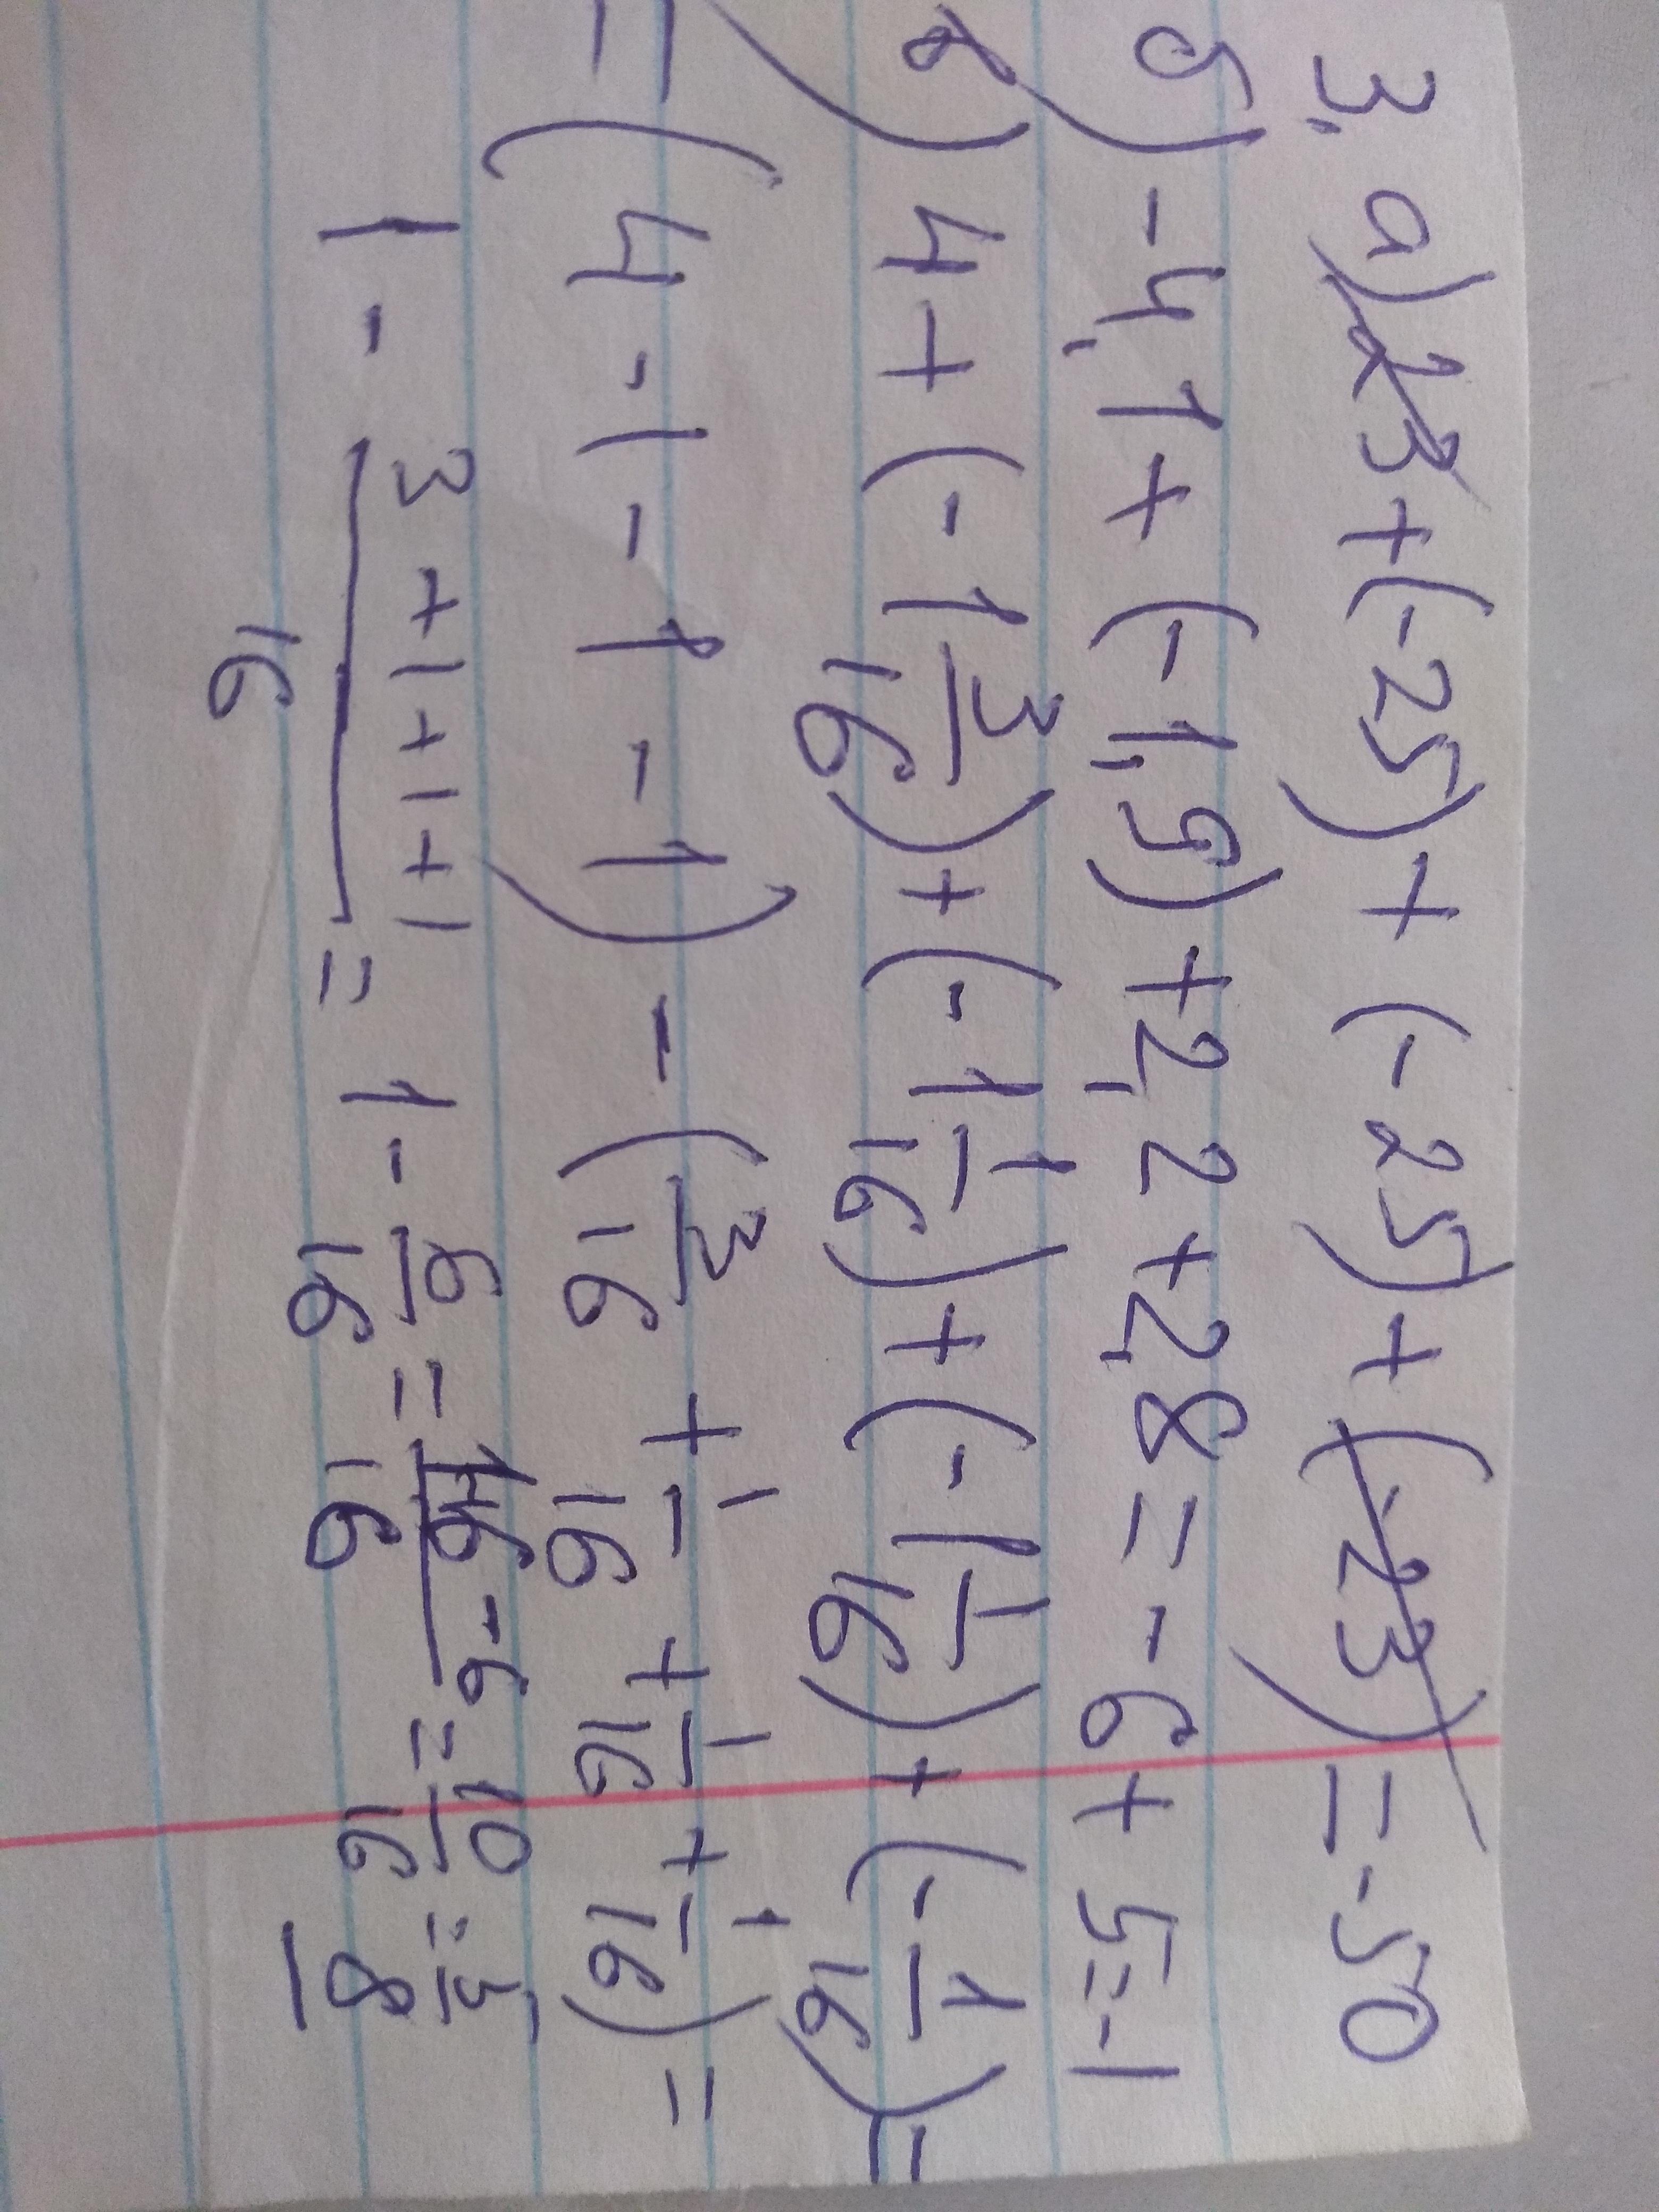 3. а) 23 + (-25) + (-25) + (-23) = -50
б) -4,1 + (-1,9) + 2,2 + 2,8 = -6 + 5 = -1
в) 4 + (-1 3/16) + (-1 1/16) + (-1 1/16) + (-1/16) =
= (4 - 1 - 1 - 1) - (3/16 + 1/16 + 1/16 + 1/16) =
1 - (3+1+1+1)/16 = 1 - 6/16 = (16-6)/16 = 10/16 = 5/8